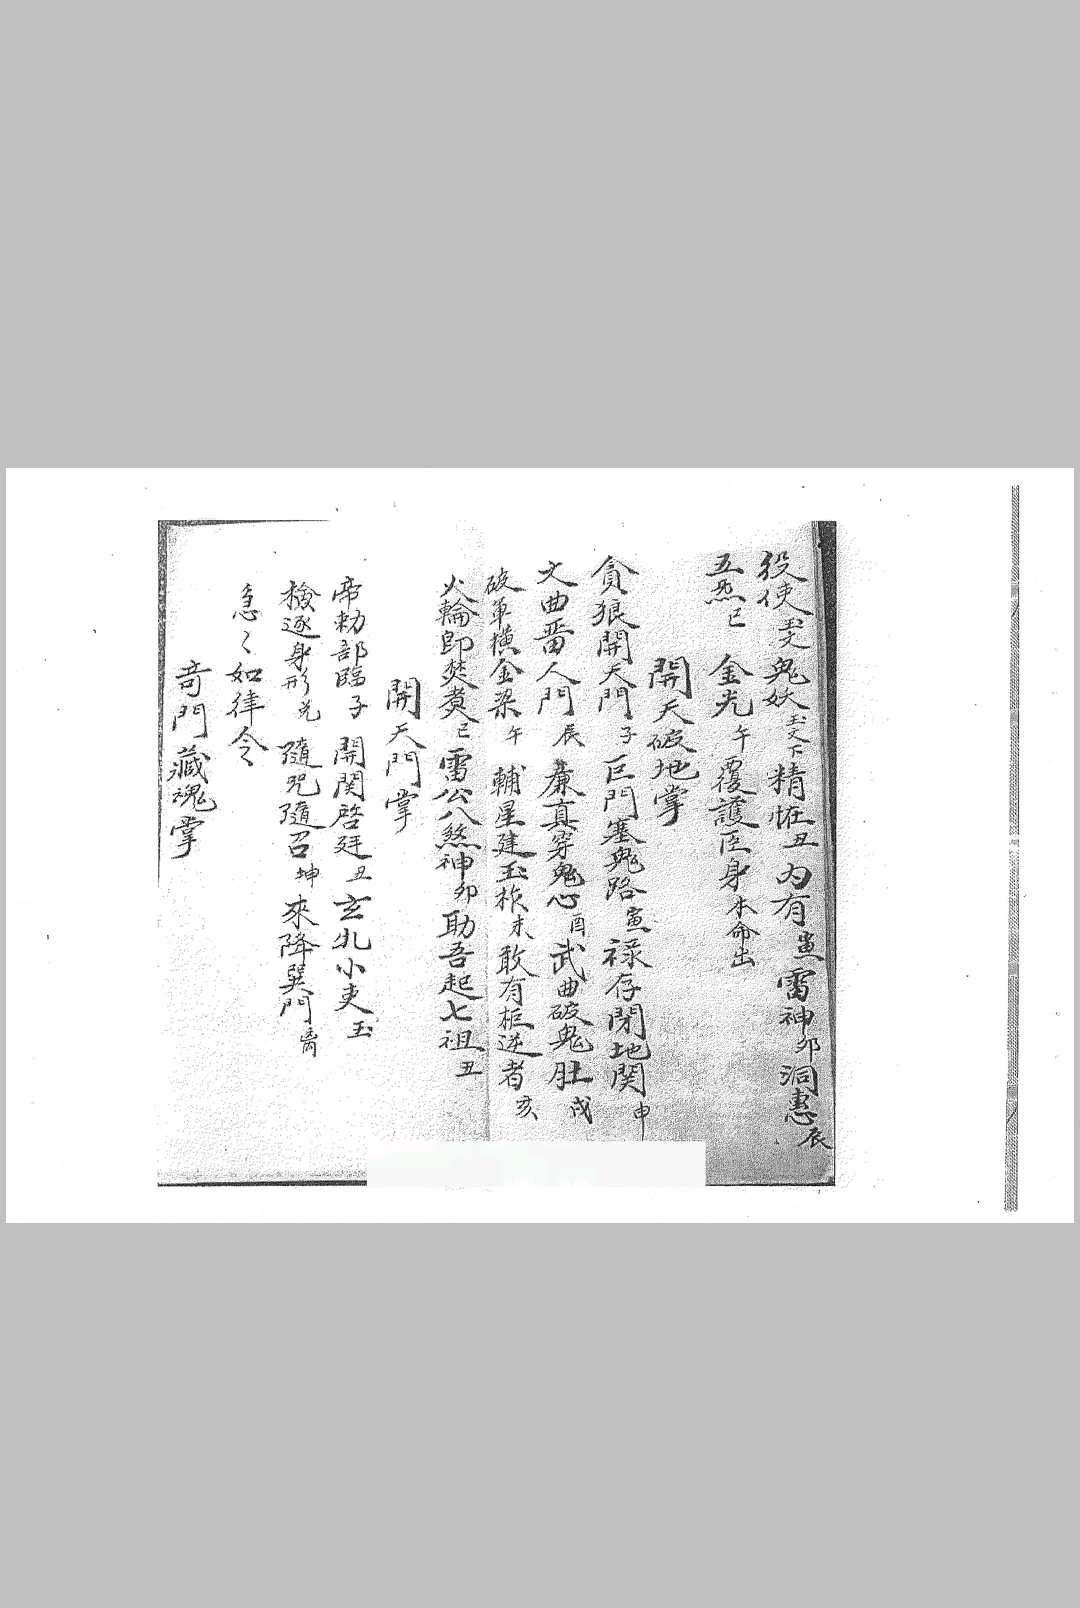 役使玉文鬼妖玉文下精恠丑内有寅雷神卯洞慧辰
五炁巳 金光午覆護臣身本命出
開天破地掌
貪狼開天門子 巨門塞鬼路寅 禄存閉地関申
文曲番人門辰 廉真穿鬼心酉 武曲破鬼肚戌
破軍横金梁午 輔星建玉柞未 敢有柜逆者亥
火輪即焚煑巳 雷公八煞神卯 助吾起七祖丑
開天門掌
帝勅部臨子 開関啓廷丑 玄北小吏玉
檢逐身形兑 隨咒隨召坤 來降巽門离
急〻如律令
竒門藏魂掌